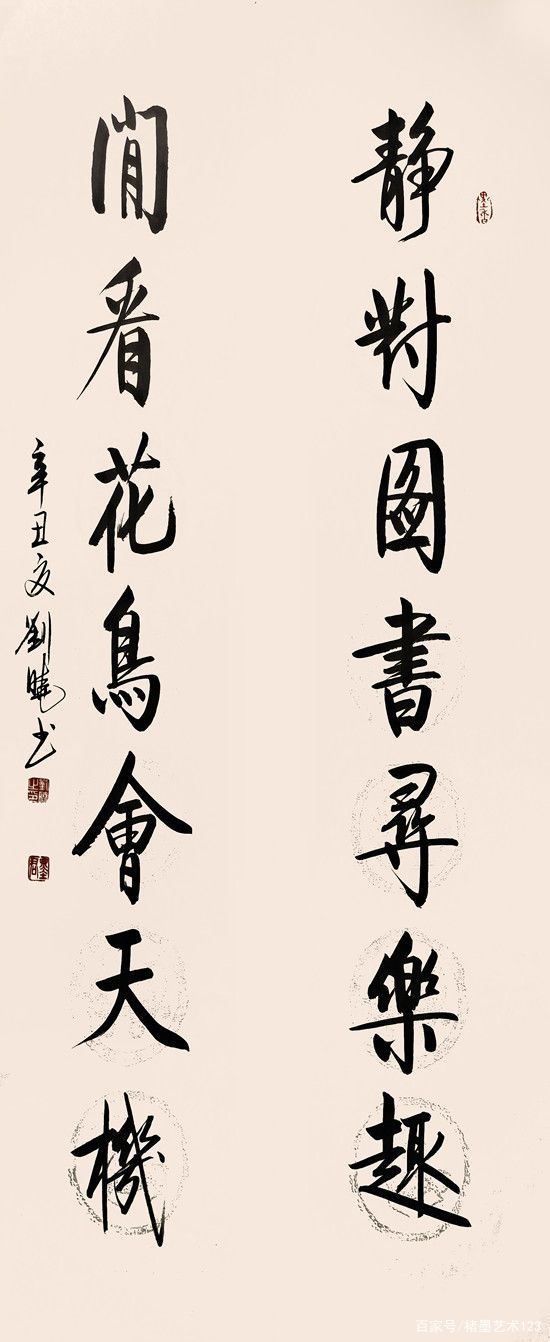 静對圖書尋樂趣
閒看花鳥會天機
辛丑夏劉曉書
百家号/楮墨艺术123